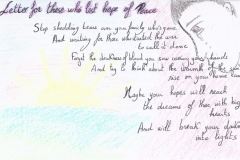 Letter for those who lost hope of Peace
Stop shedding tears over your family who's gone
And waiting for those who started the war
to call it done
Forget the darkness of blood you saw using your hands
And try to think about the warmth of the sun
rise on your
Maybe your hopes will reach
the dreams of those with big
hearts
And will break your
into lights